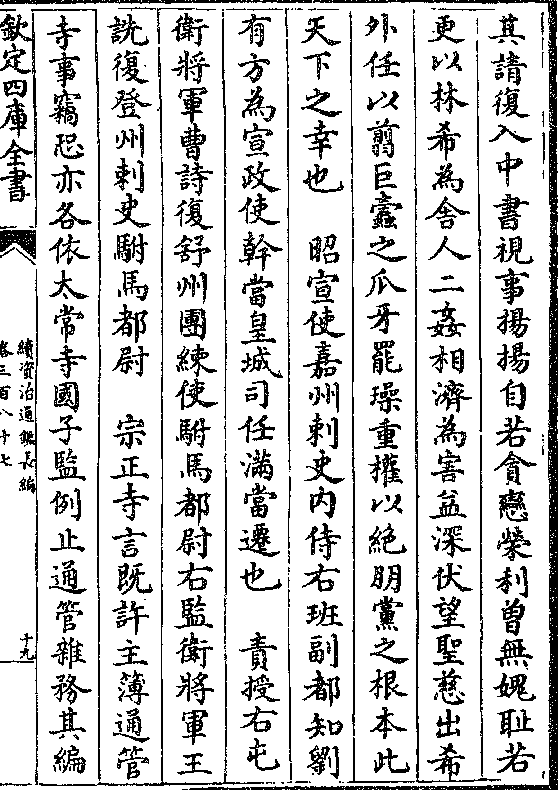 其請復入中書視事揚揚自若貪戀榮利曾無媿耻若
更以林希為舍人二姦相濟為害益深伏望聖慈出希
外任以翦巨蠹之爪牙罷璪重權以絶朋黨之根本此
天下之幸也　昭宣使嘉州刺史内侍右班副都知劉
有方為宣政使幹當皇城司任滿當遷也　責授右屯
衛將軍曹詩復舒州團練使駙馬都尉右監衛將軍王
詵復登州刺史駙馬都尉　宗正寺言既許主簿通管
寺事竊恐亦各依太常寺國子監例止通管雜務其編
欽定四庫全書
續資治通鑑長編
卷三百八十七
十九